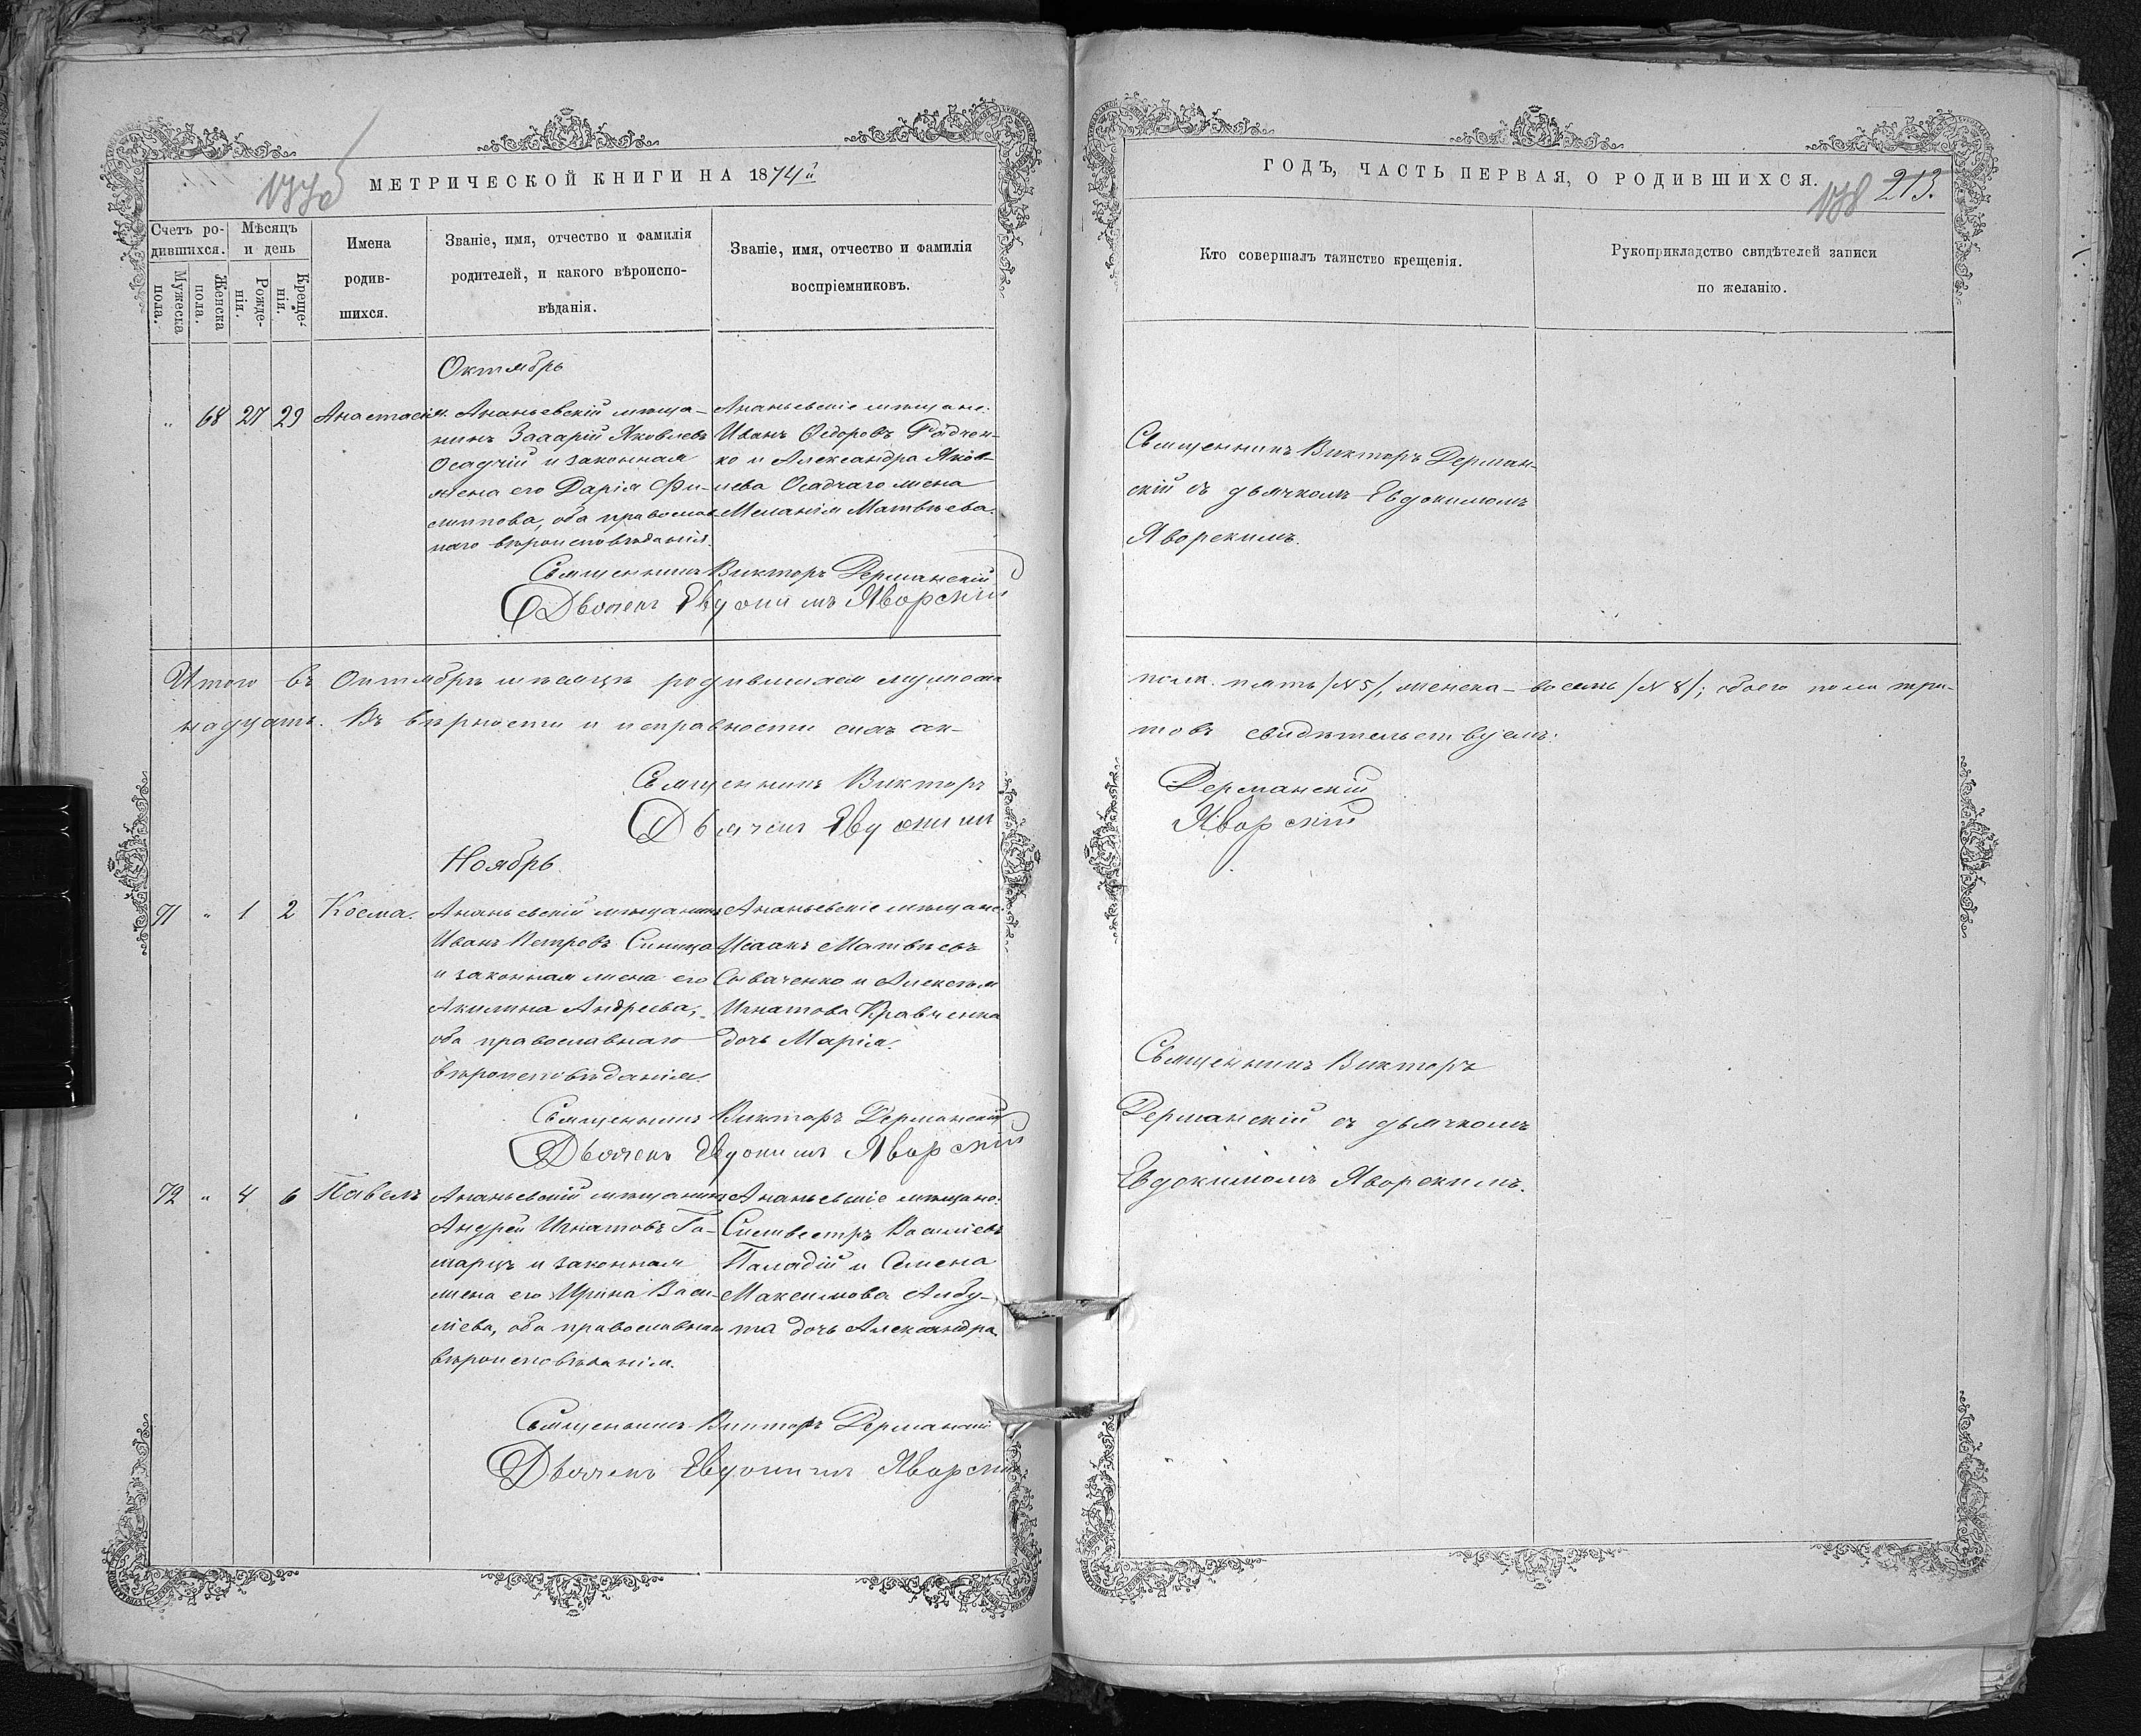 МЕТРИЧЕСКОЙ КНИГИ НА 1874й
Счетъ ро-
дившихся.
Мѣсяцъ
и день
Мужеска
пола.
Женска
пола.
Рожде-
нія.
Креще-
нія.
Имена
родив-
шихся.
Званіе, имя, отчество и фамилія
родителей, и какого вѣроиспо-
вѣданія.
Званіе, имя, отчество и фамилія
воспріемниковъ.
Октябрь
„ 68 27 29 Анастасія.
Ананьевскій мѣща-
нинъ Захарій Яковлевъ
Осадчій и законная
жена его Дарія Фи-
липпова, оба православ-
наго вѣроисповѣданія.
Ананьевскіе мѣщане:
Иванъ Ѳедоровъ Радчен-
ко и Александра Яков-
лева Осадчаго жена
Меланія Матвѣева.
Священникъ Викторъ Дерманскій
Дьячекъ Евдокимъ Яворскій
Итого въ Октябрѣ мѣсяцѣ родившихся мужеска
надцать. Въ вѣрности и исправности сихъ ак-
Священникъ Викторъ
Дьячекъ Евдокимъ
Ноябрь
71 „ 1 2 Косма.
Ананьевскій мѣщанинъ
Иванъ Петровъ Синица
и законная жена его
Акилина Андреева,
оба православнаго
вѣроисповѣданія.
Ананьевскіе мѣщане:
Исаакъ Матвѣевъ
Сываченко и Алексѣя
Игнатова Кравченка
дочь Марія.
Священникъ Викторъ Дерманскій
Дьячекъ Евдокимъ Яворскій
72 „ 4 6 Павелъ
Ананьевскій мѣщанинъ
Андрей Игнатовъ
и законная
жена его Ирина Васи-
лева, оба православнаго
вѣроисповѣданія.
Ананьевскіе мѣщане:
Сильвестръ Васильевъ
Паладій и Семена
Максимова Албу-
та дочь Александра.
Священникъ Викторъ Дерманскій
Дьячекъ Евдокимъ Яворскій
ГОДЪ, ЧАСТЬ ПЕРВАЯ, О РОДИВШИХСЯ.
178 213.
Кто совершалъ таинство крещенія.
Рукоприкладство свидѣтелей записи
по желанію.
Священникъ Викторъ Дерман-
скій съ дьячкомъ Евдокимомъ
Яворскимъ.
пола пять /№ 5/, женска – восемь /№ 8/; обоего пола три-
товъ свидѣтельствуемъ:
Дерманскій
Яворскій
Священникъ Викторъ
Дерманскій съ дьячкомъ
Евдокимомъ Яворскимъ.